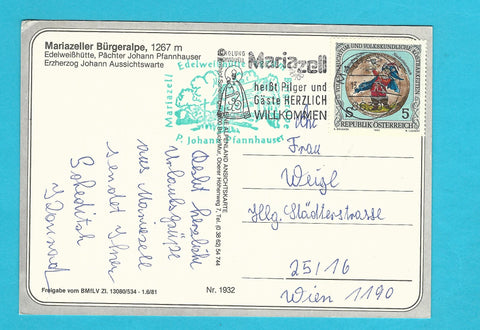 Mariazeller Bürgeralpe, 1267 m
Edelweißhütte, Pächter Johann Pfannhauser
Erzherzog Johann Aussichtswarte
Mariazell
Edelweißhütte
P. Johann Pfannhauser
Mariazell
heißt Pilger und
Gäste HERZLICH
WILLKOMMEN
S 5
REPUBLIK ÖSTERREICH
ANSICHTSKARTE
Oberer Höhenweg 7, Tel. (0 38 62) 54 744
Recht herzliche
Urlaubsgrüße
aus Mariazell
sendet Ihnen
Frau
Weigl
Hlg. Städterstrasse
25/16
Wien 1190
Freigabe vom BMfLV Zl. 13080/534 - 1.6/81
Nr. 1932